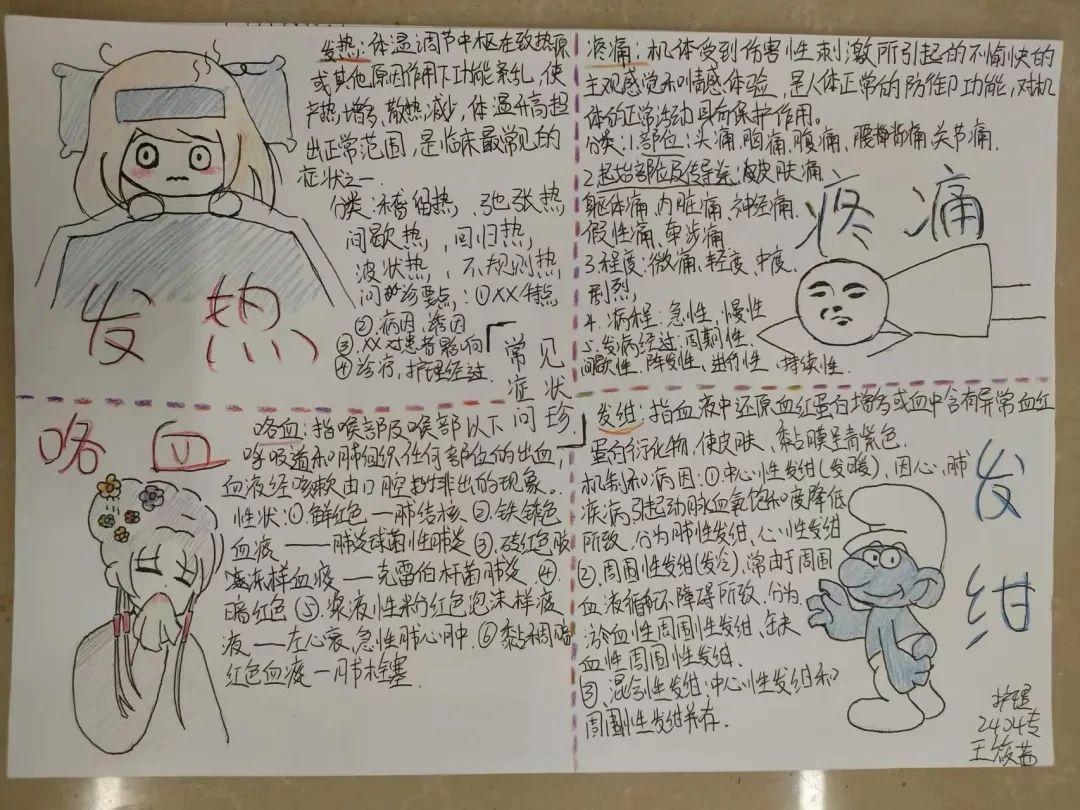 发热:体温调节中枢在致热原
或其他原因作用下功能紊乱,使
产热增多,散热减少,体温升高超
出正常范围,是临床最常见的
症状之一.
分类:稽留热,弛张热
间歇热,回归热,
波状热,不规则热,
问诊要点:①XX特点
②病因、诱因
③XX对患者影响
④诊疗,护理经过.
发热
常见
症状
问珍
疼痛:机体受到伤害性刺激所引起的不愉快的
主观感觉和情感体验,是人体正常的防御功能,对机
体的正常活动具有保护作用。
分类:1.部位:头痛,胸痛,腹痛,腰背痛,关节痛.
2.起始部位及传导途:皮肤痛,
躯体痛,内脏痛,神经痛.
假性痛、牵涉痛
3.程度:微痛、轻度、中度、
剧烈,
4.病程:急性,慢性
5.发病经过:周期性.
间歇性.阵发性、进行性、持续性.
疼痛
咯血
咯血:指喉部及喉部以下
呼吸道和肺组织任何部位的出血,
血液经咳嗽由口腔排出的现象。
性状:①.鲜红色—肺结核.②.铁锈色
血痰——肺炎球菌性肺炎③.砖红色胶
冻样血痰—克雷伯杆菌肺炎.④.
暗红色⑤.浆液性粉红色泡沫样痰
液——左心衰,急性肺心肿.⑥黏稠暗
红色血痰—肺栓塞.
发绀:指血液中还原血红蛋白增多或血中含有异常血红
蛋白衍化物,使皮肤、黏膜呈青紫色.
机制和病因:①中心性发绀(发暖),因心,肺
疾病引起动脉血氧饱和度降低
所致,分为肺性发绀、心性发绀
②.周围性发绀(发冷),常由于周围
血液循环障碍所致,分为
淤血性周围性发绀、缺
血性周围性发绀.
③.混合性发绀:中心性发绀和
周围性发绀并存.
发绀
护理
2404专
王筱